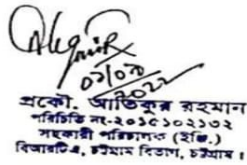 ০১/০৯/২০২২
প্রকৌ. আতিকুর রহমান
পরিচিতি নং-২০১৫১০২১৩২
সহকারী পরিচালক (ইঞ্জি.)
বিআরটিএ, চট্টগ্রাম বিভাগ, চট্টগ্রাম।